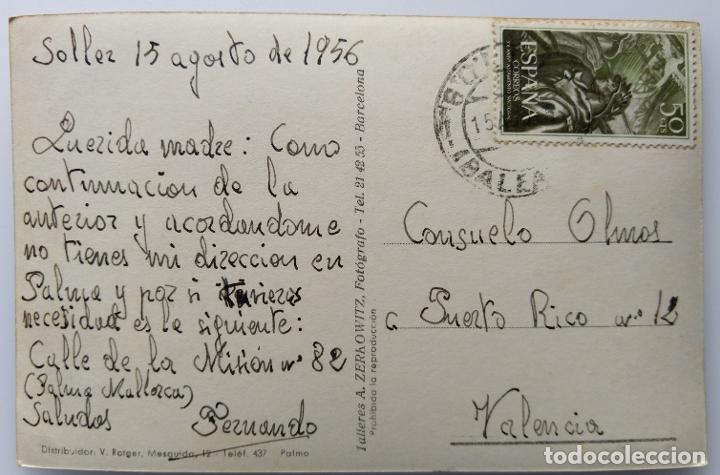 Soller 15 agosto de 1956
Querida madre: Como
continuacion de la
anterior y acordandome
no tienes mi direccion en
Palma y por si tuvieras
necesidad es la siguiente:
Calle de la Misión nº 82
(Palma Mallorca)
Saludos Fernando
Distribuidor: V. Rotger, Mesquida, 12 - Teléf. 437 Palma
Talleres A. ZERKOWITZ, Fotógrafo - Tel. 21 42 55 - Barcelona
Prohibida la reproducción
ESPAÑA
CORREOS
50 CTS
15
(BALEA
Consuelo Olmos
a Puerto Rico nº 12
Valencia
todocoleccion.net